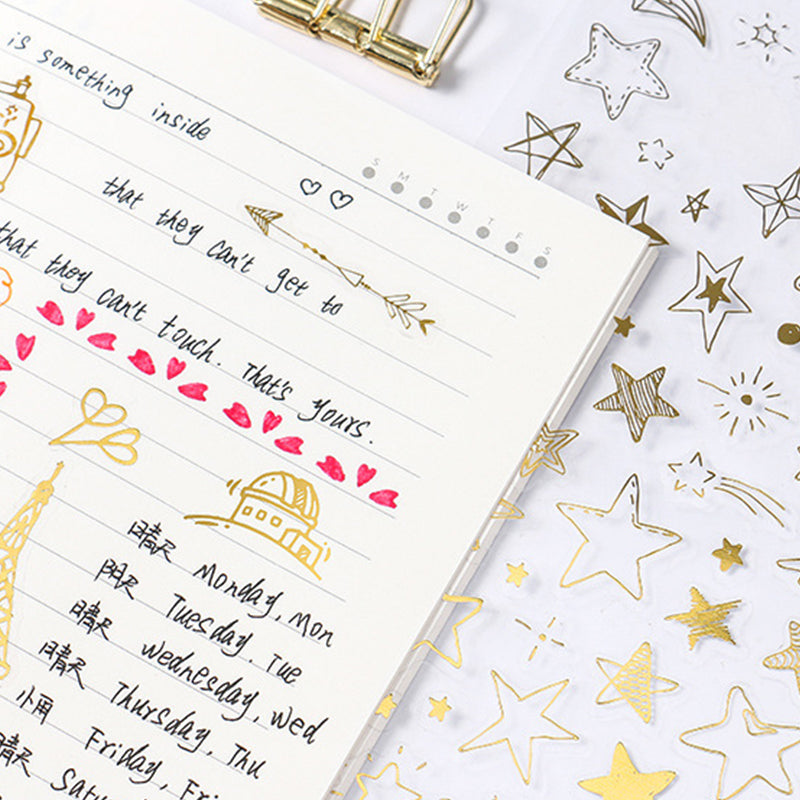 is something inside
S M T W T F S
that they can't get to
that they can't touch. That's yours.
晴天 Monday, Mon
阴天 Tuesday, Tue
晴天 Wednesday, Wed
晴天 Thursday, Thu
小雨 Friday, Fri.
晴天 Satu